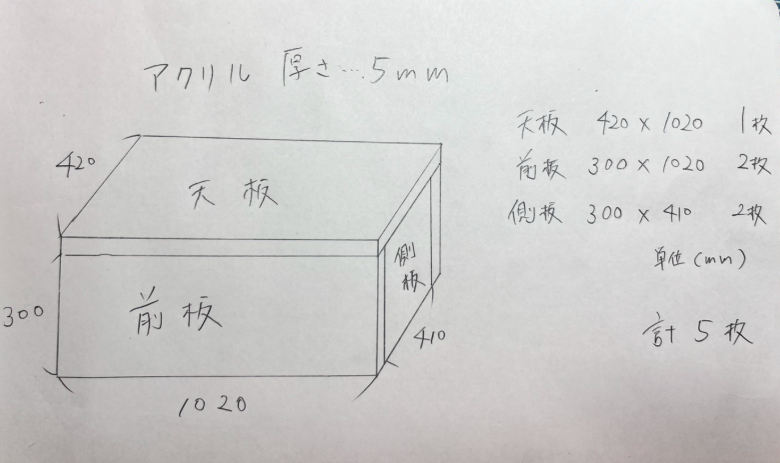 アクリル 厚さ…5mm
420
天板
側板
前板
300
410
1020
天板 420 × 1020 1枚
前板 300 × 1020 2枚
側板 300 × 410 2枚
単位(mm)
計 5枚